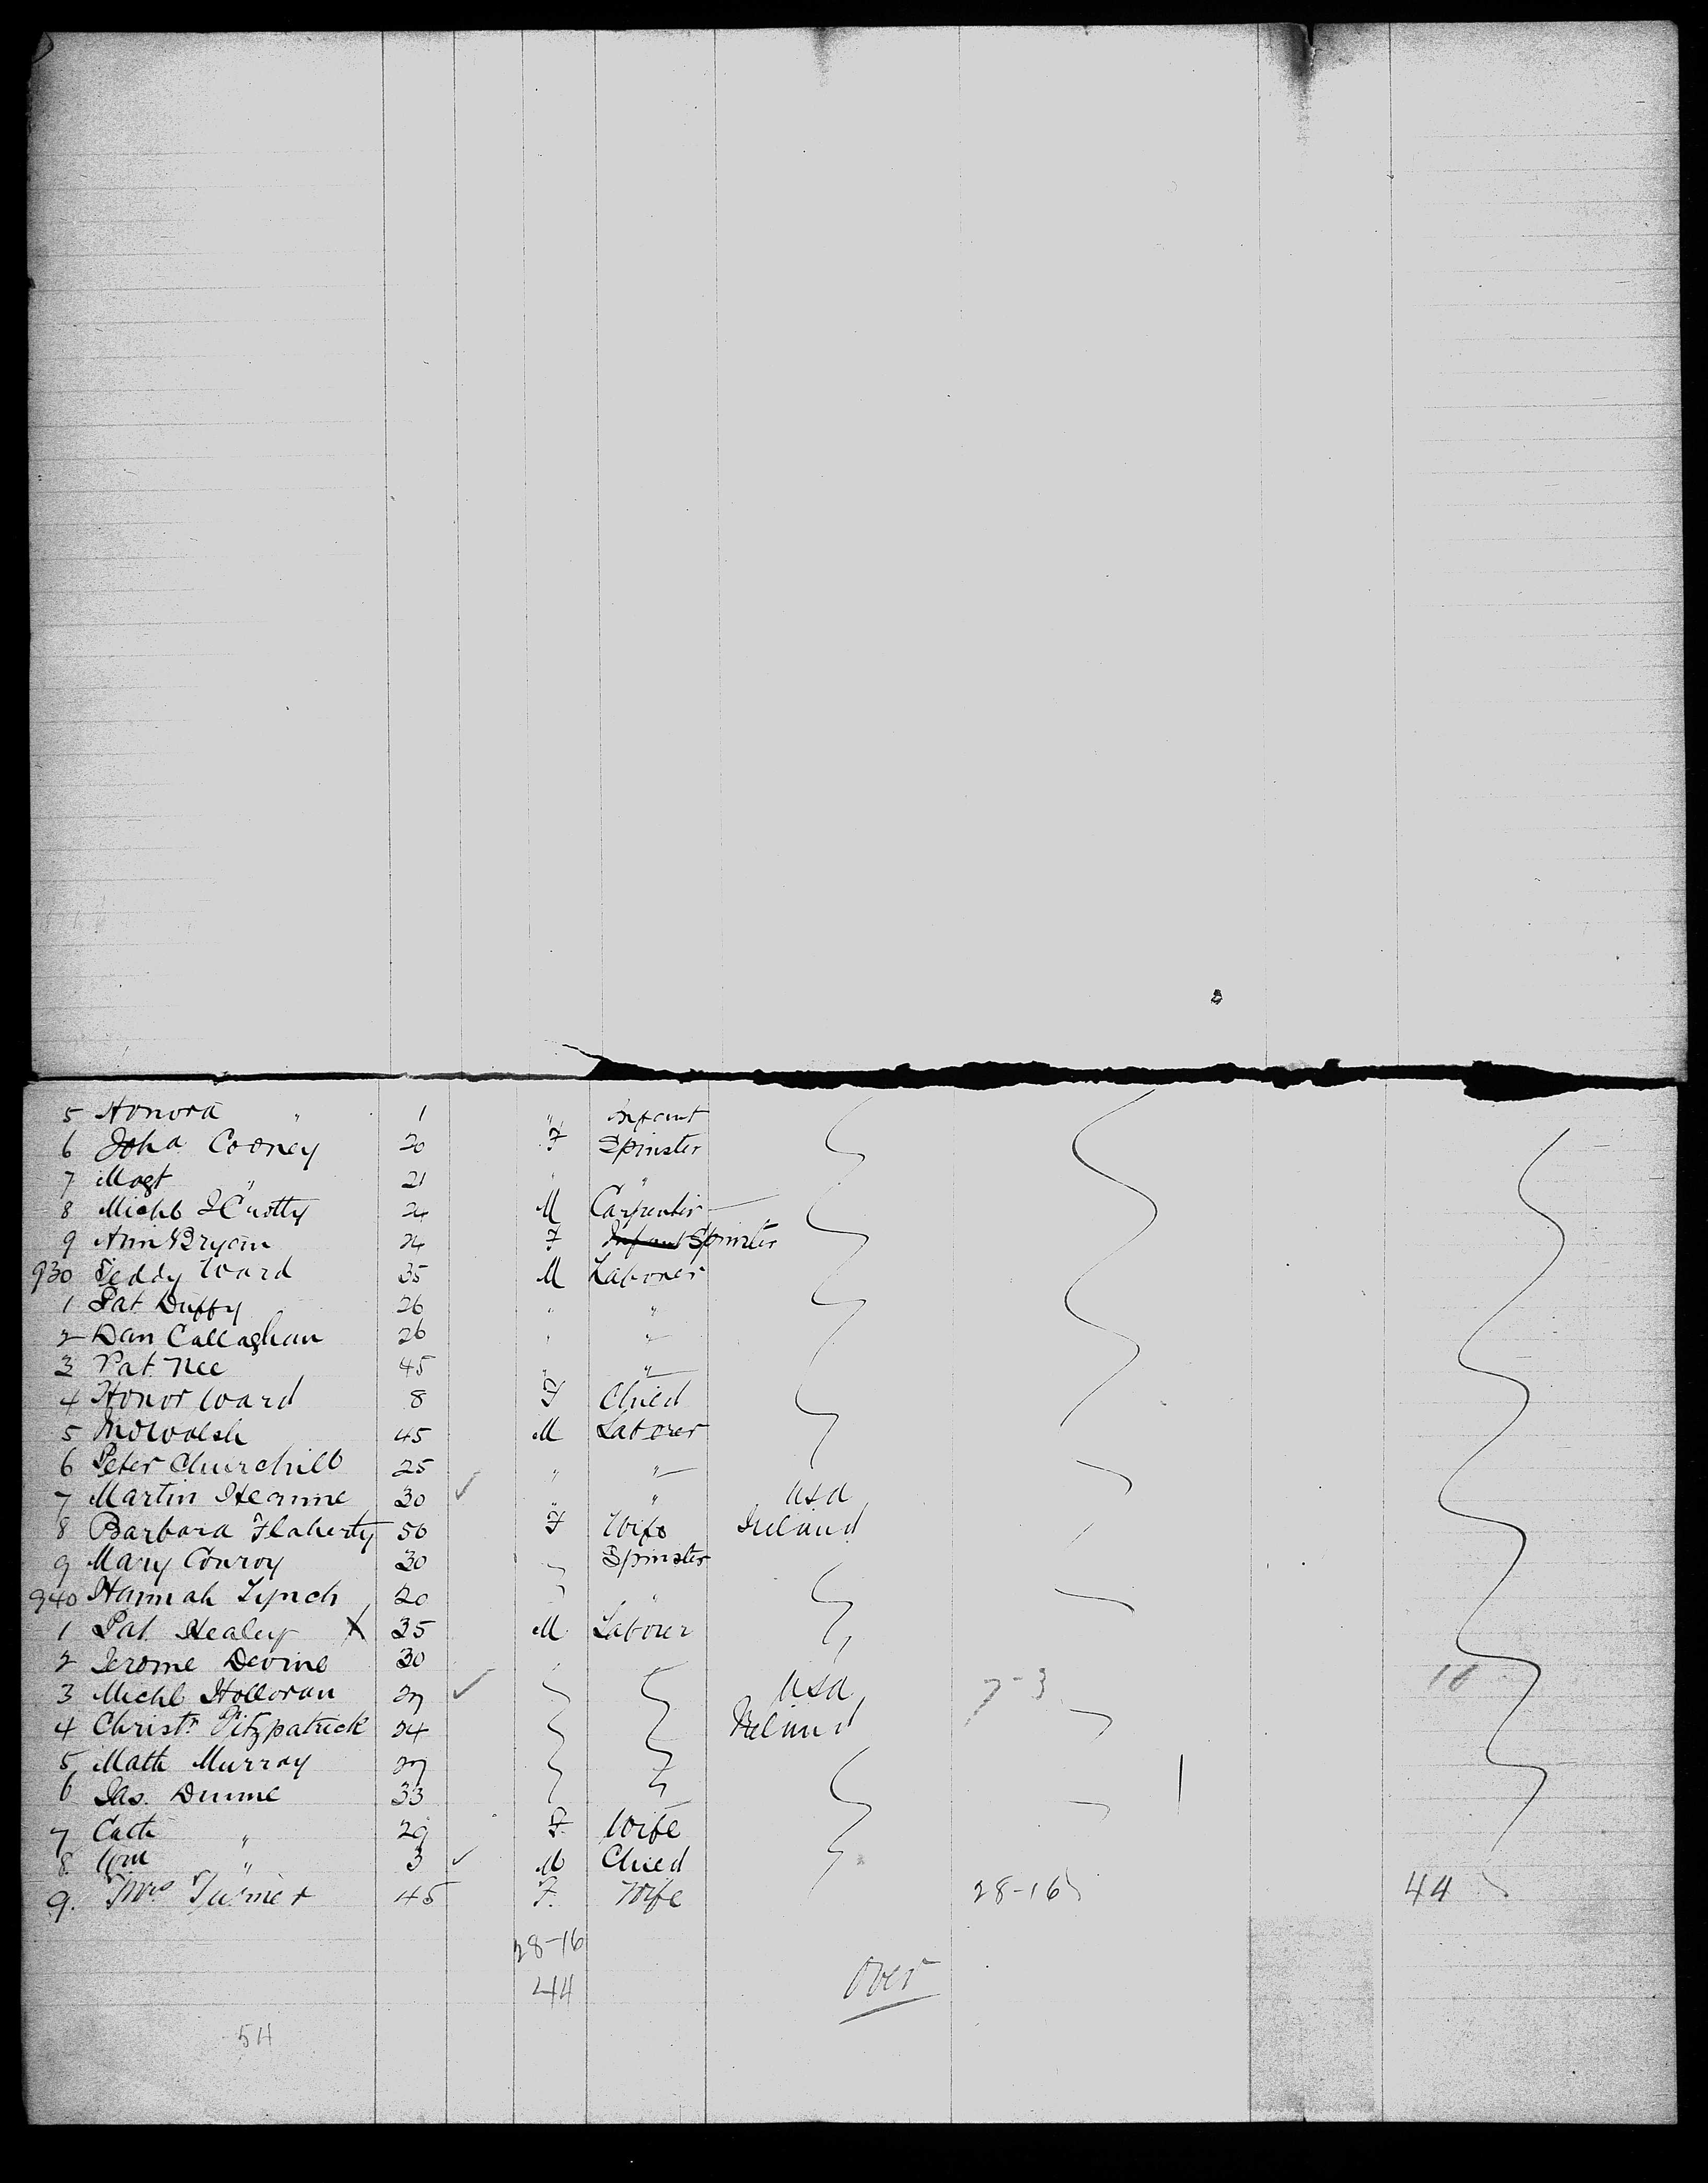 5 Honora " 1 " Infant
6 Joha Cooney 20 F Spinster
7 Magt " 21 " "
8 Michl 24 M Carpenter
9 Ann Bryan 24 F Infant Spinster
930 Teddy Ward 35 M Laborer
1 Pat Duffy 26 " "
2 Dan Callaghan 26 " "
3 Pat Nee 45 " "
4 Honor Ward 8 F Child
5 Walsh 45 M Laborer
6 Peter Churchill 25 " "
7 Martin 30 ✓ " " USA
8 Barbara Flaherty 50 F Wife Ireland
9 Mary Conroy 30 Spinster
940 Hannah Lynch 20 "
1 Pat Healey X 35 M Laborer
2 Jerome Devine 30 "
3 Michl Holloran ✓ USA 7-3 10
4 Christr Fitzpatrick 24 Ireland
5 Math Murray
6 Jas. Dunne 33
7 Cath " 29 F. Wife
8. Wm " 3 ✓ M Child
9. Mrs Turner 45 F. Wife 28-16 44
28-16
44
Over
54